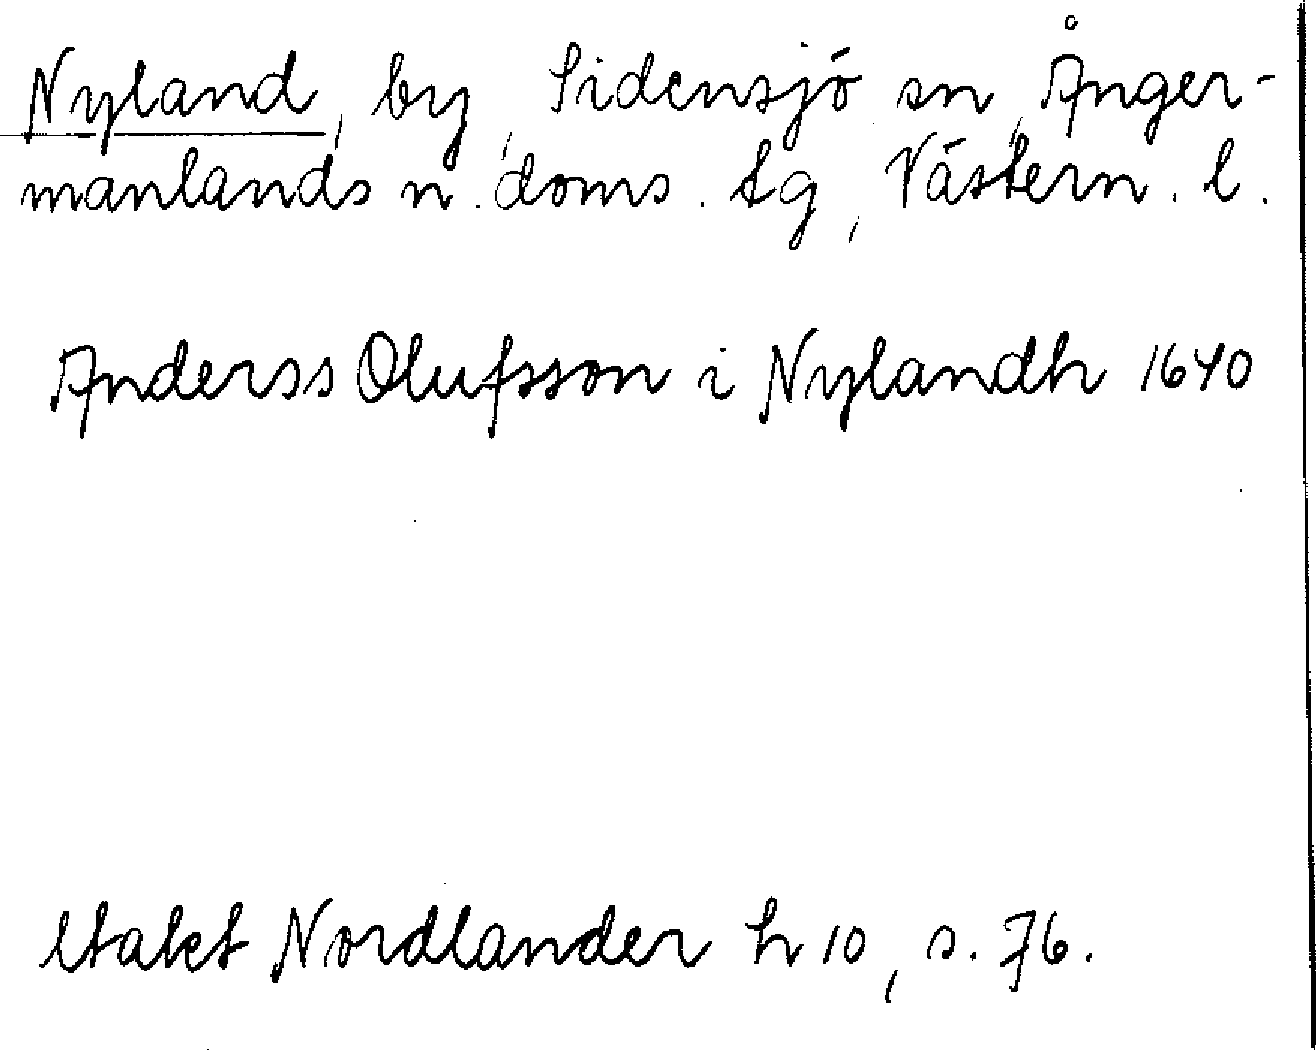 Nyland, by, Sidensjö sn, Ånger-
manlands n. doms. tg, Västern. l.
Anderss Olufsson i Nylandh 1640
Utakt Nordlander h 10, s. 76.